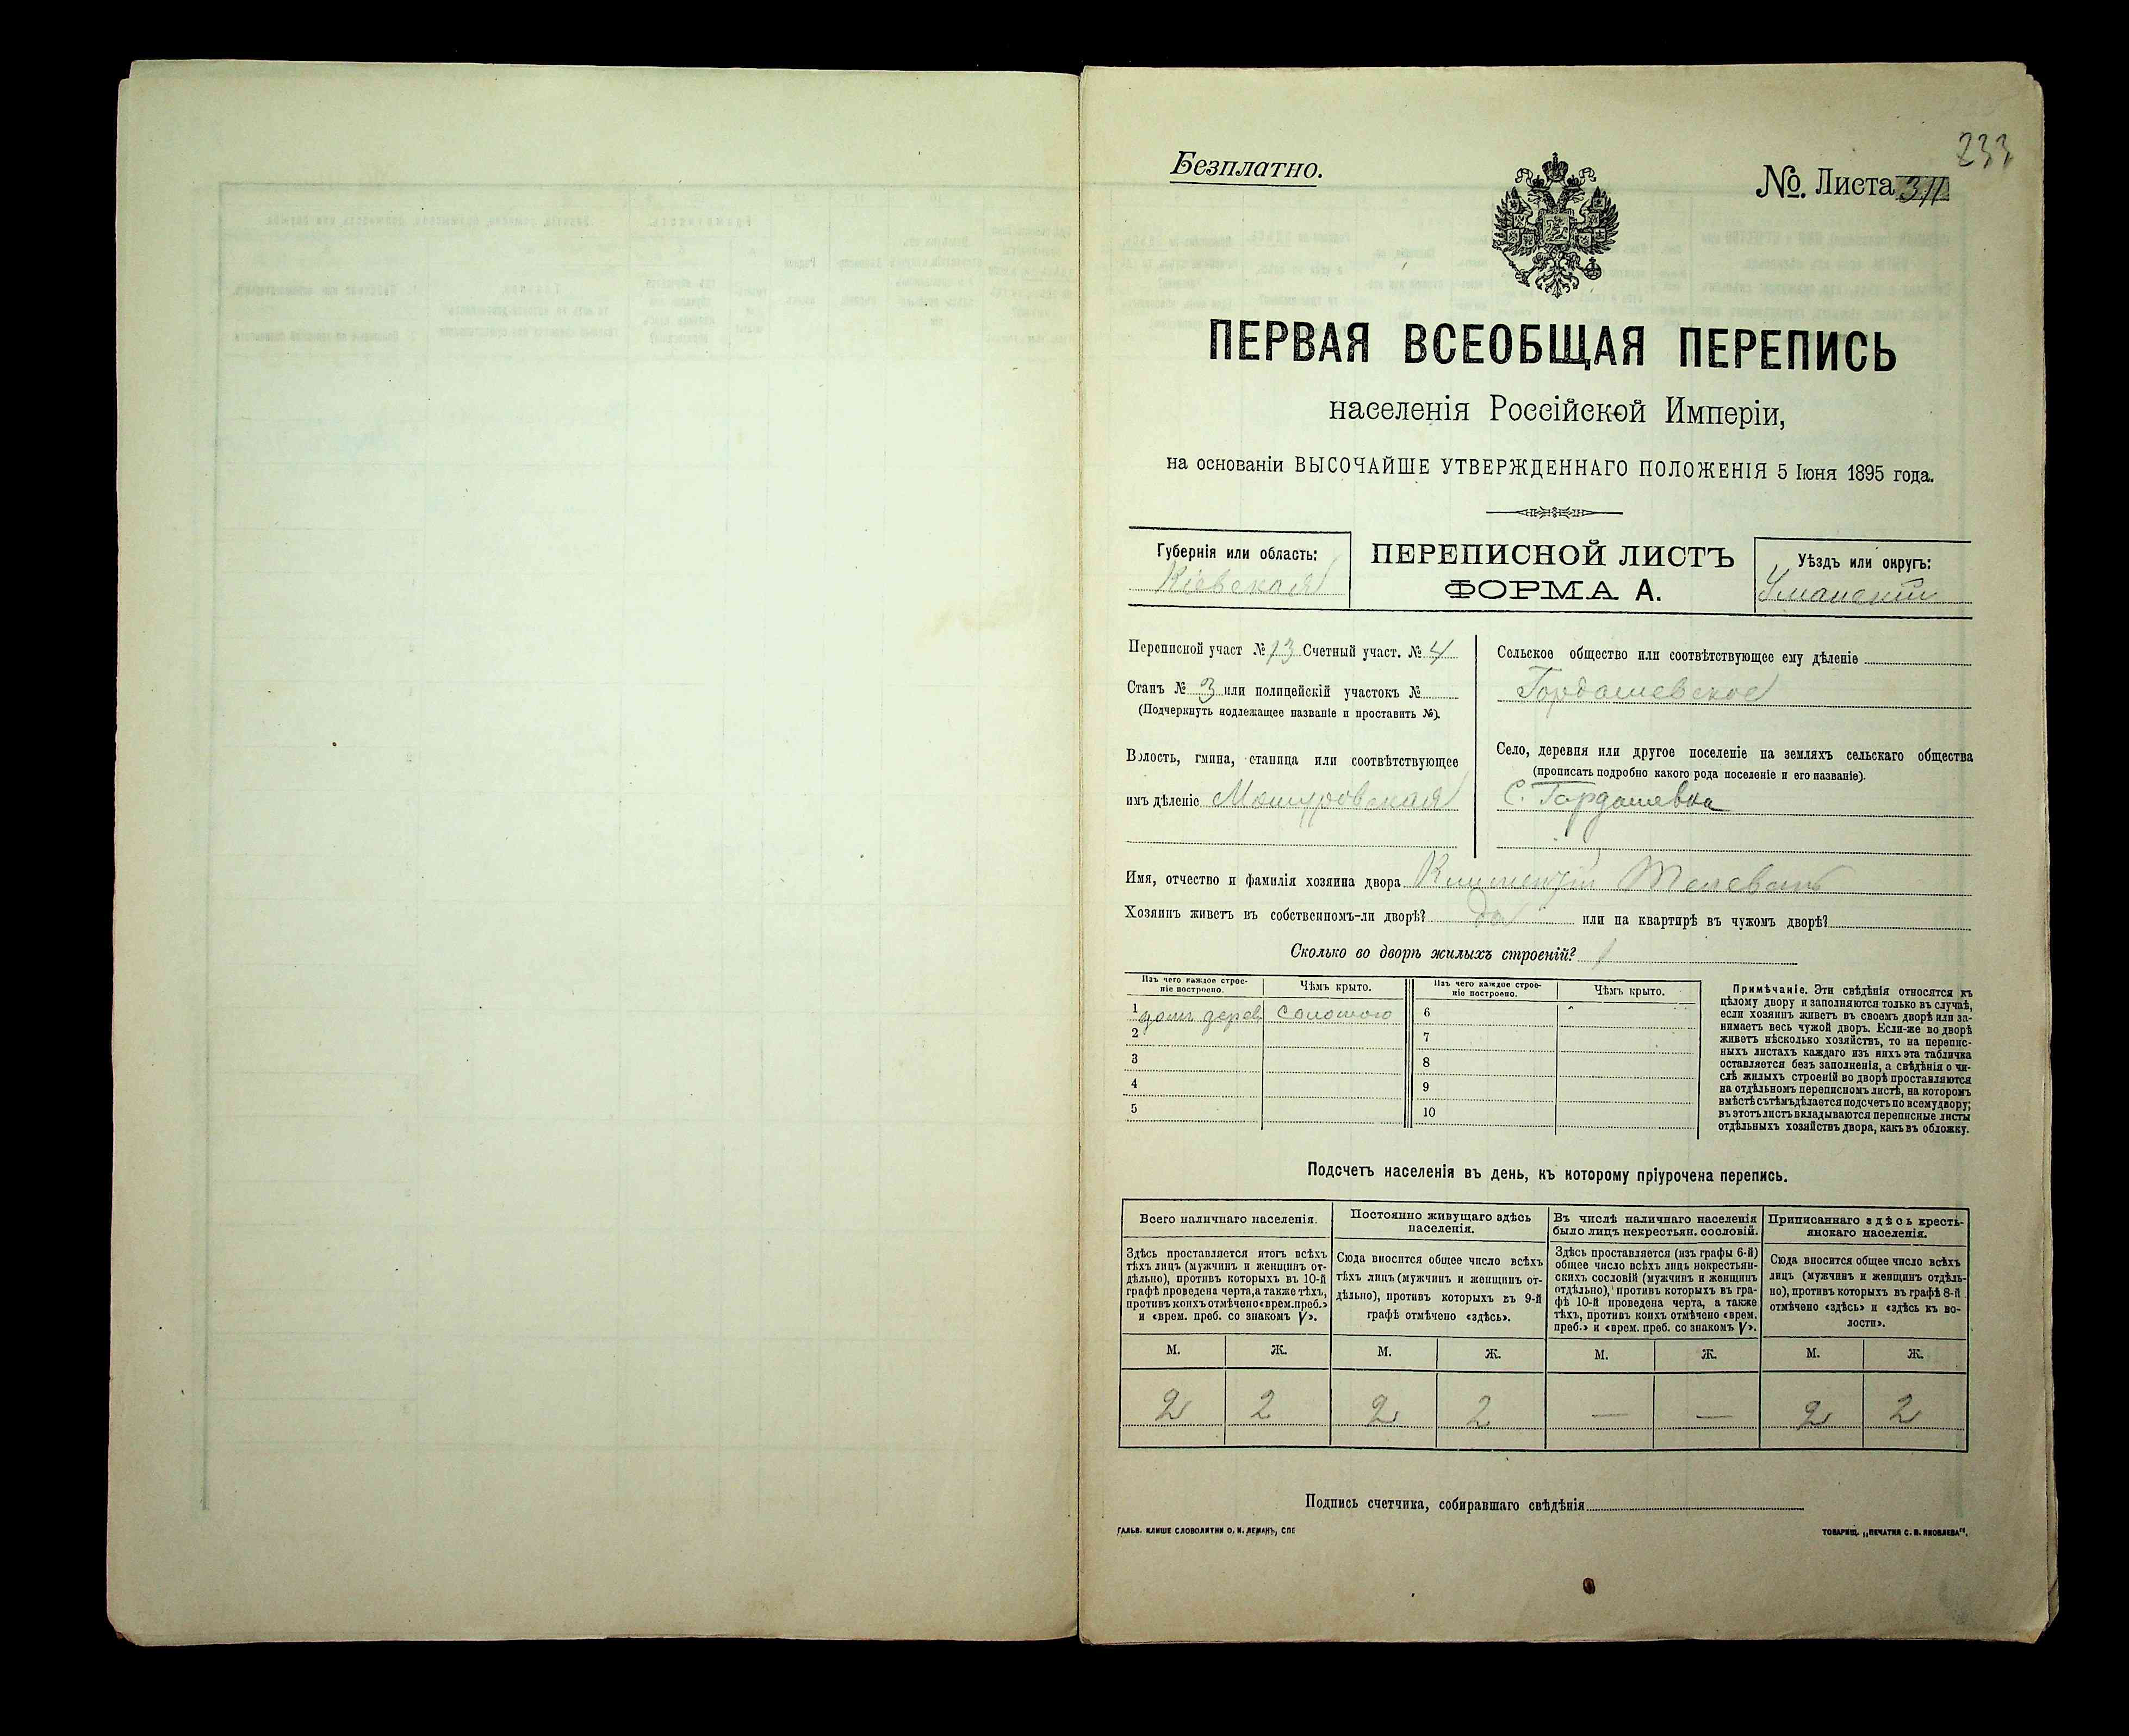 233
Безплатно.
№. Листа 311
ПЕРВАЯ ВСЕОБЩАЯ ПЕРЕПИСЬ
населенія Россійской Имперіи,
на основаніи ВЫСОЧАЙШЕ УТВЕРЖДЕННАГО ПОЛОЖЕНІЯ 5 Іюня 1895 года.
Губернія или область:
Кіевская
ПЕРЕПИСНОЙ ЛИСТЪ
ФОРМА А.
Уѣздъ или округъ:
Уманскій
Переписной участ № 13 Счетный участ. № 4
Станъ № 3 или полицейскій участокъ №
(Подчеркнуть подлежащее названіе и проставить №).
Волость, гмина, станица или соотвѣтствующее
имъ дѣленіе Машуровская
Сельское общество или соотвѣтствующее ему дѣленіе
Гордашевское
Село, деревня или другое поселеніе на земляхъ сельскаго общества
(прописать подробно какого рода поселеніе и его названіе).
С. Гордашевка
Имя, отчество и фамилія хозяина двора Климентій
Хозяинъ живетъ въ собственномъ-ли дворѣ? да или на квартирѣ въ чужомъ дворѣ?
Сколько во дворѣ жилыхъ строеній? 1
Изъ чего каждое строе-
ніе построено.
Чѣмъ крыто.
Изъ чего каждое строе-
ніе построено.
Чѣмъ крыто.
1 домъ дерев. соломою 6
2 7
3 8
4 9
5 10
Примѣчаніе. Эти свѣдѣнія относятся къ
цѣлому двору и заполняются только въ случаѣ,
если хозяинъ живетъ въ своемъ дворѣ или за-
нимаетъ весь чужой дворъ. Если-же во дворѣ
живетъ нѣсколько хозяйствъ, то на перепис-
ныхъ листахъ каждаго изъ нихъ эта табличка
оставляется безъ заполненія, а свѣдѣнія о чи-
слѣ жилыхъ строеній во дворѣ проставляются
на отдѣльномъ переписномъ листѣ, на которомъ
вмѣстѣ съ тѣмъ дѣлается подсчетъ по всему двору;
въ этотъ листъ вкладываются переписные листы
отдѣльныхъ хозяйствъ двора, какъ въ обложку.
Подсчетъ населенія въ день, къ которому пріурочена перепись.
Всего наличнаго населенія.
Здѣсь проставляется итогъ всѣхъ
тѣхъ лицъ (мужчинъ и женщинъ от-
дѣльно), противъ которыхъ въ 10-й
графѣ проведена черта, а также тѣхъ,
противъ коихъ отмѣчено «врем. преб.»
и «врем. преб. со знакомъ V».
Постоянно живущаго здѣсь
населенія.
Сюда вносится общее число всѣхъ
тѣхъ лицъ (мужчинъ и женщинъ от-
дѣльно), противъ которыхъ въ 9-й
графѣ отмѣчено «здѣсь».
Въ числѣ наличнаго населенія
было лицъ некрестьян. сословій.
Здѣсь проставляется (изъ графы 6-й)
общее число всѣхъ лицъ некрестьян-
скихъ сословій (мужчинъ и женщинъ
отдѣльно), противъ которыхъ въ гра-
фѣ 10-й проведена черта, а также
тѣхъ, противъ коихъ отмѣчено «врем.
преб.» и «врем. преб. со знакомъ V».
Приписаннаго здѣсь кресть-
янскаго населенія.
Сюда вносится общее число всѣхъ
лицъ (мужчинъ и женщинъ отдѣль-
но), противъ которыхъ въ графѣ 8-й
отмѣчено «здѣсь» и «здѣсь къ во-
лости».
М. Ж. М. Ж. М. Ж. М. Ж.
2 2 2 2 — — 2 2
Подпись счетчика, собиравшаго свѣдѣнія
ГАЛЬВ. КЛИШЕ СЛОВОЛИТНИ О. И. ЛЕМАНЪ, СПБ
ТОВАРИЩ. „ПЕЧАТНЯ С. П. ЯКОВЛЕВА".